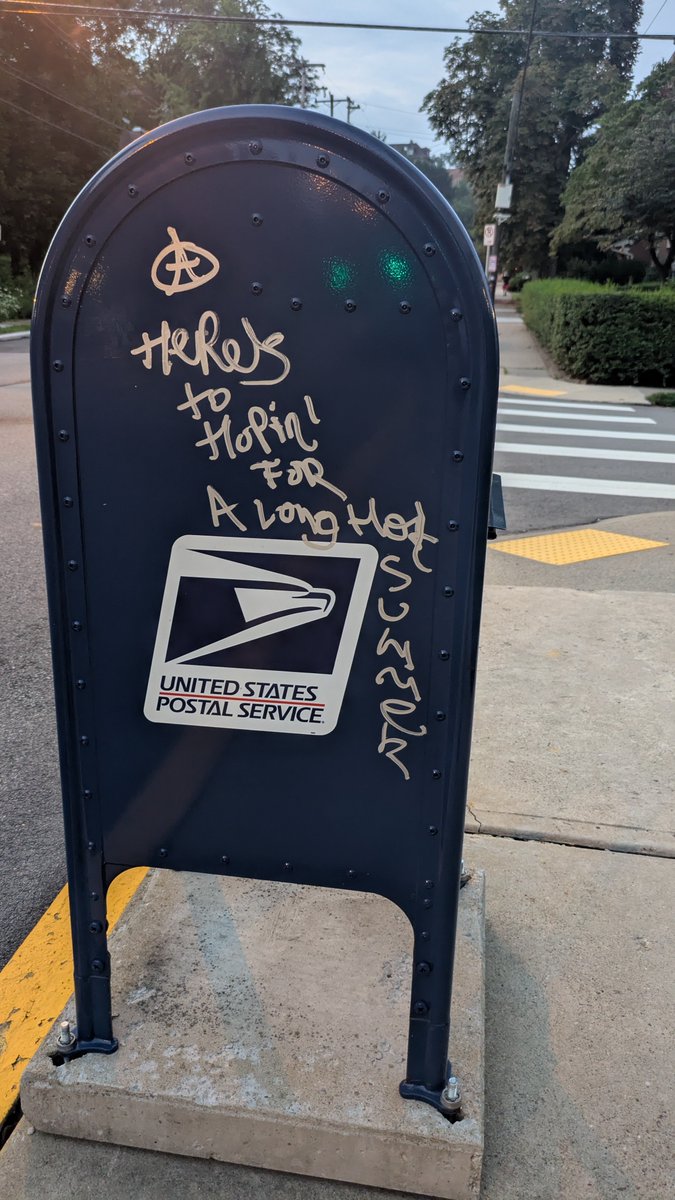 HeRe's
to
HoPin'
FoR
A Long Hot
SUMMER
UNITED STATES
POSTAL SERVICE®